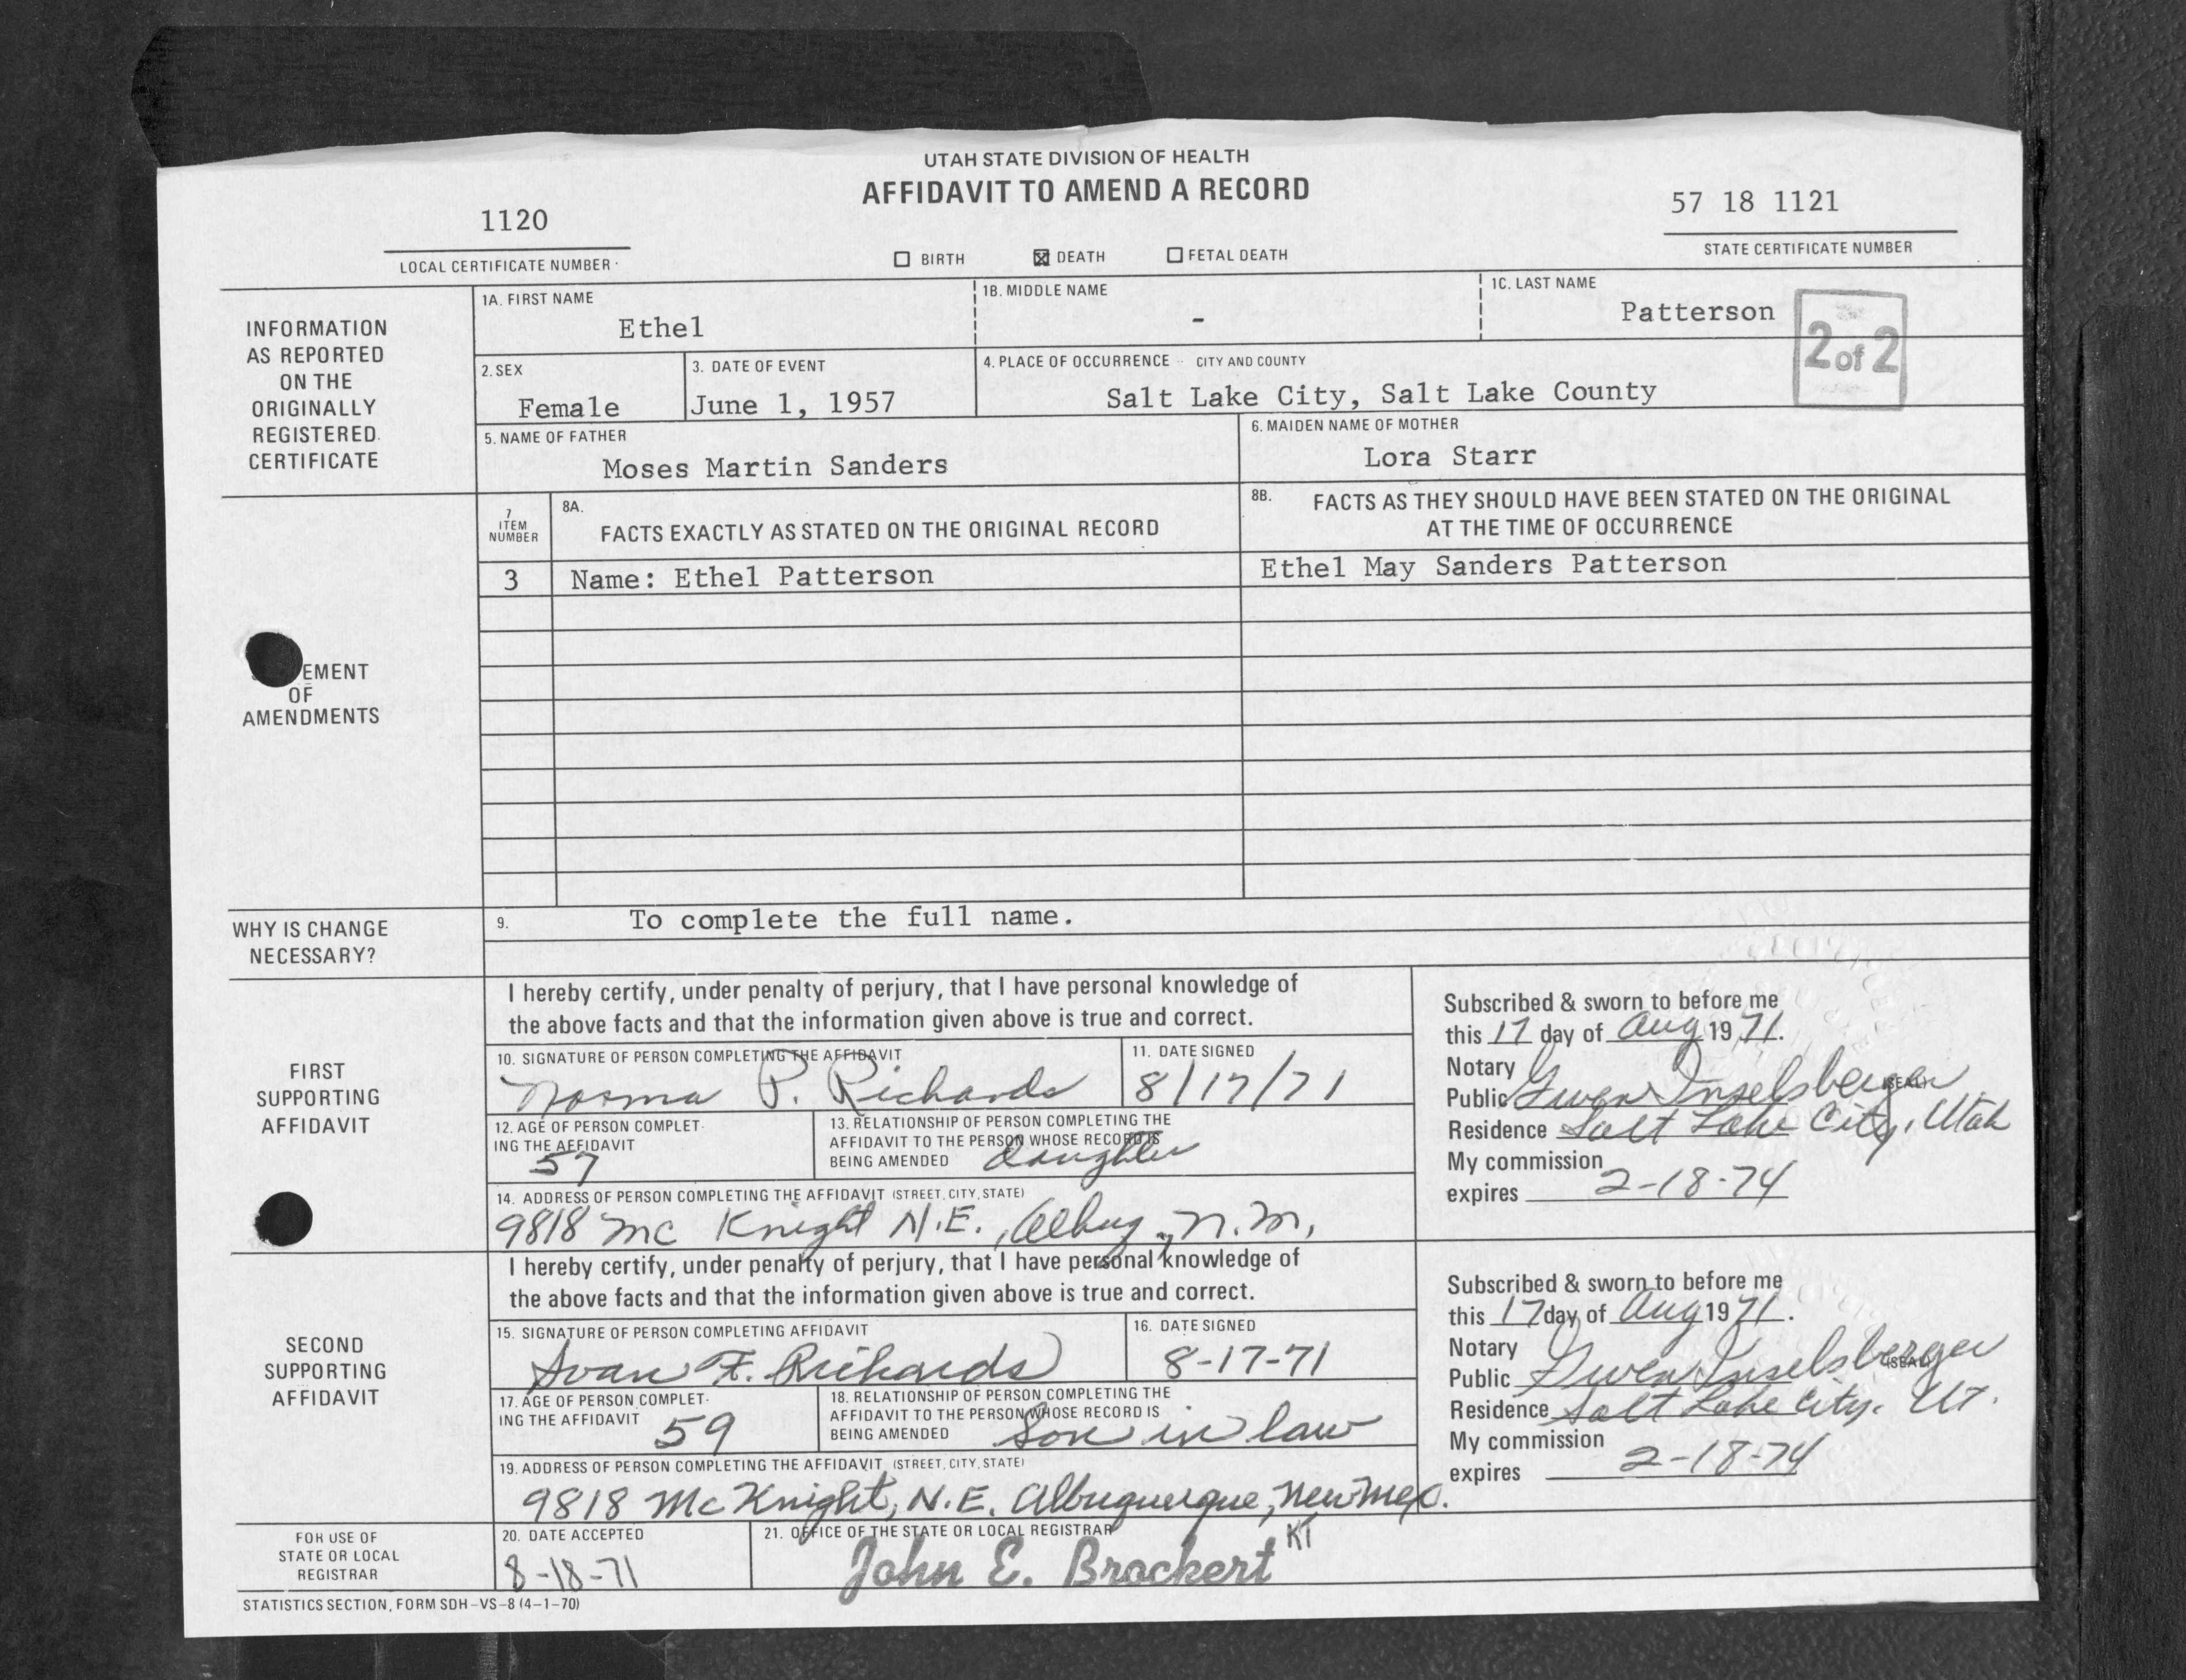 UTAH STATE DIVISION OF HEALTH
AFFIDAVIT TO AMEND A RECORD
1120
LOCAL CERTIFICATE NUMBER
57 18 1121
STATE CERTIFICATE NUMBER
☐ BIRTH ☒ DEATH ☐ FETAL DEATH
INFORMATION
AS REPORTED
ON THE
ORIGINALLY
REGISTERED
CERTIFICATE
1A. FIRST NAME
Ethel
1B. MIDDLE NAME
-
1C. LAST NAME
Patterson
2 of 2
2. SEX
Female
3. DATE OF EVENT
June 1, 1957
4. PLACE OF OCCURRENCE -- CITY AND COUNTY
Salt Lake City, Salt Lake County
5. NAME OF FATHER
Moses Martin Sanders
6. MAIDEN NAME OF MOTHER
Lora Starr
EMENT
OF
AMENDMENTS
7
ITEM
NUMBER
8A.
FACTS EXACTLY AS STATED ON THE ORIGINAL RECORD
8B. FACTS AS THEY SHOULD HAVE BEEN STATED ON THE ORIGINAL
AT THE TIME OF OCCURRENCE
3 Name: Ethel Patterson Ethel May Sanders Patterson
WHY IS CHANGE
NECESSARY?
9. To complete the full name.
FIRST
SUPPORTING
AFFIDAVIT
I hereby certify, under penalty of perjury, that I have personal knowledge of
the above facts and that the information given above is true and correct.
10. SIGNATURE OF PERSON COMPLETING THE AFFIDAVIT
Norma P. Richards
11. DATE SIGNED
8/17/71
12. AGE OF PERSON COMPLET-
ING THE AFFIDAVIT
57
13. RELATIONSHIP OF PERSON COMPLETING THE
AFFIDAVIT TO THE PERSON WHOSE RECORD IS
BEING AMENDED daughter
14. ADDRESS OF PERSON COMPLETING THE AFFIDAVIT (STREET, CITY, STATE)
9818 Mc Knight N.E., Albuq., N.M.,
Subscribed & sworn to before me
this 17 day of Aug 19 71.
Notary
Public Gwen Inselsberger (SEAL)
Residence Salt Lake City, Utah
My commission
expires 2-18-74
SECOND
SUPPORTING
AFFIDAVIT
I hereby certify, under penalty of perjury, that I have personal knowledge of
the above facts and that the information given above is true and correct.
15. SIGNATURE OF PERSON COMPLETING AFFIDAVIT
Ivan F. Richards
16. DATE SIGNED
8-17-71
17. AGE OF PERSON COMPLET-
ING THE AFFIDAVIT 59
18. RELATIONSHIP OF PERSON COMPLETING THE
AFFIDAVIT TO THE PERSON WHOSE RECORD IS
BEING AMENDED Son in law
19. ADDRESS OF PERSON COMPLETING THE AFFIDAVIT (STREET, CITY, STATE)
9818 McKnight, N.E. Albuquerque, New Mex.
Subscribed & sworn to before me
this 17 day of Aug 19 71.
Notary
Public Gwen Inselsberger (SEAL)
Residence Salt Lake City, Ut.
My commission
expires 2-18-74
FOR USE OF
STATE OR LOCAL
REGISTRAR
20. DATE ACCEPTED
8-18-71
21. OFFICE OF THE STATE OR LOCAL REGISTRAR
John E. Brockert KT
STATISTICS SECTION, FORM SDH-VS-8 (4-1-70)